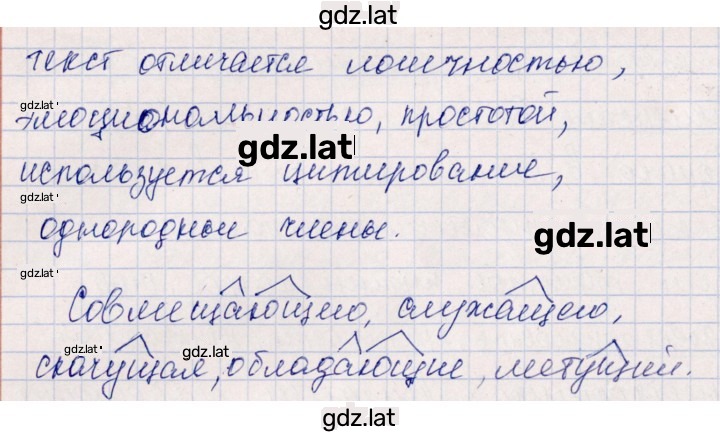 gdz.lat
текст отличается логичностью,
gdz.lat
эмоциональностью, простотой,
gdz.lat
используется цитирование,
однородные члены.
gdz.lat
gdz.lat
Совмещающего, служащего,
gdz.lat
gdz.lat
скачущая, обладающие, летущий.
gdz.lat